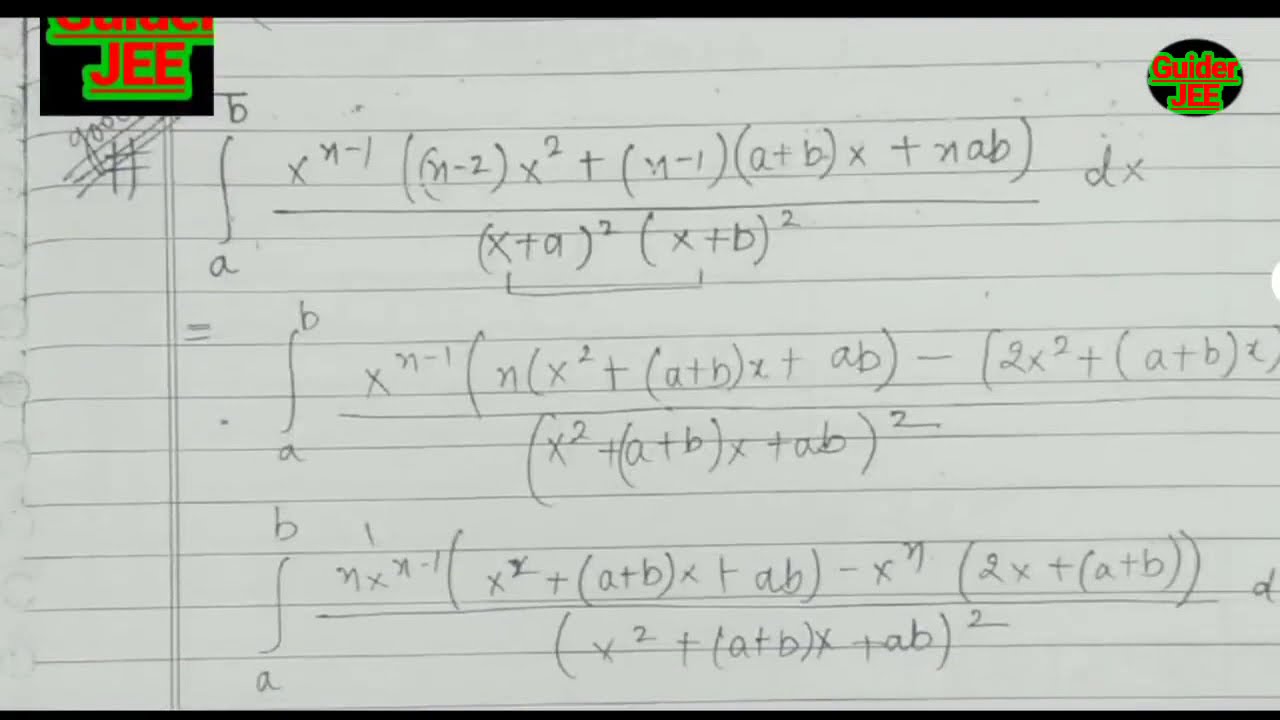 Guider
JEE
Guider
JEE
good
∫_a^b x^{n-1} ((n-2)x^2 + (n-1)(a+b)x + nab) / (x+a)^2 (x+b)^2 dx
= ∫_a^b x^{n-1} (n(x^2 + (a+b)x + ab) - (2x^2 + (a+b)x) / (x^2 + (a+b)x + ab)^2
∫_a^b nx^{n-1} (x^2 + (a+b)x + ab) - x^n (2x + (a+b)) / (x^2 + (a+b)x + ab)^2 d